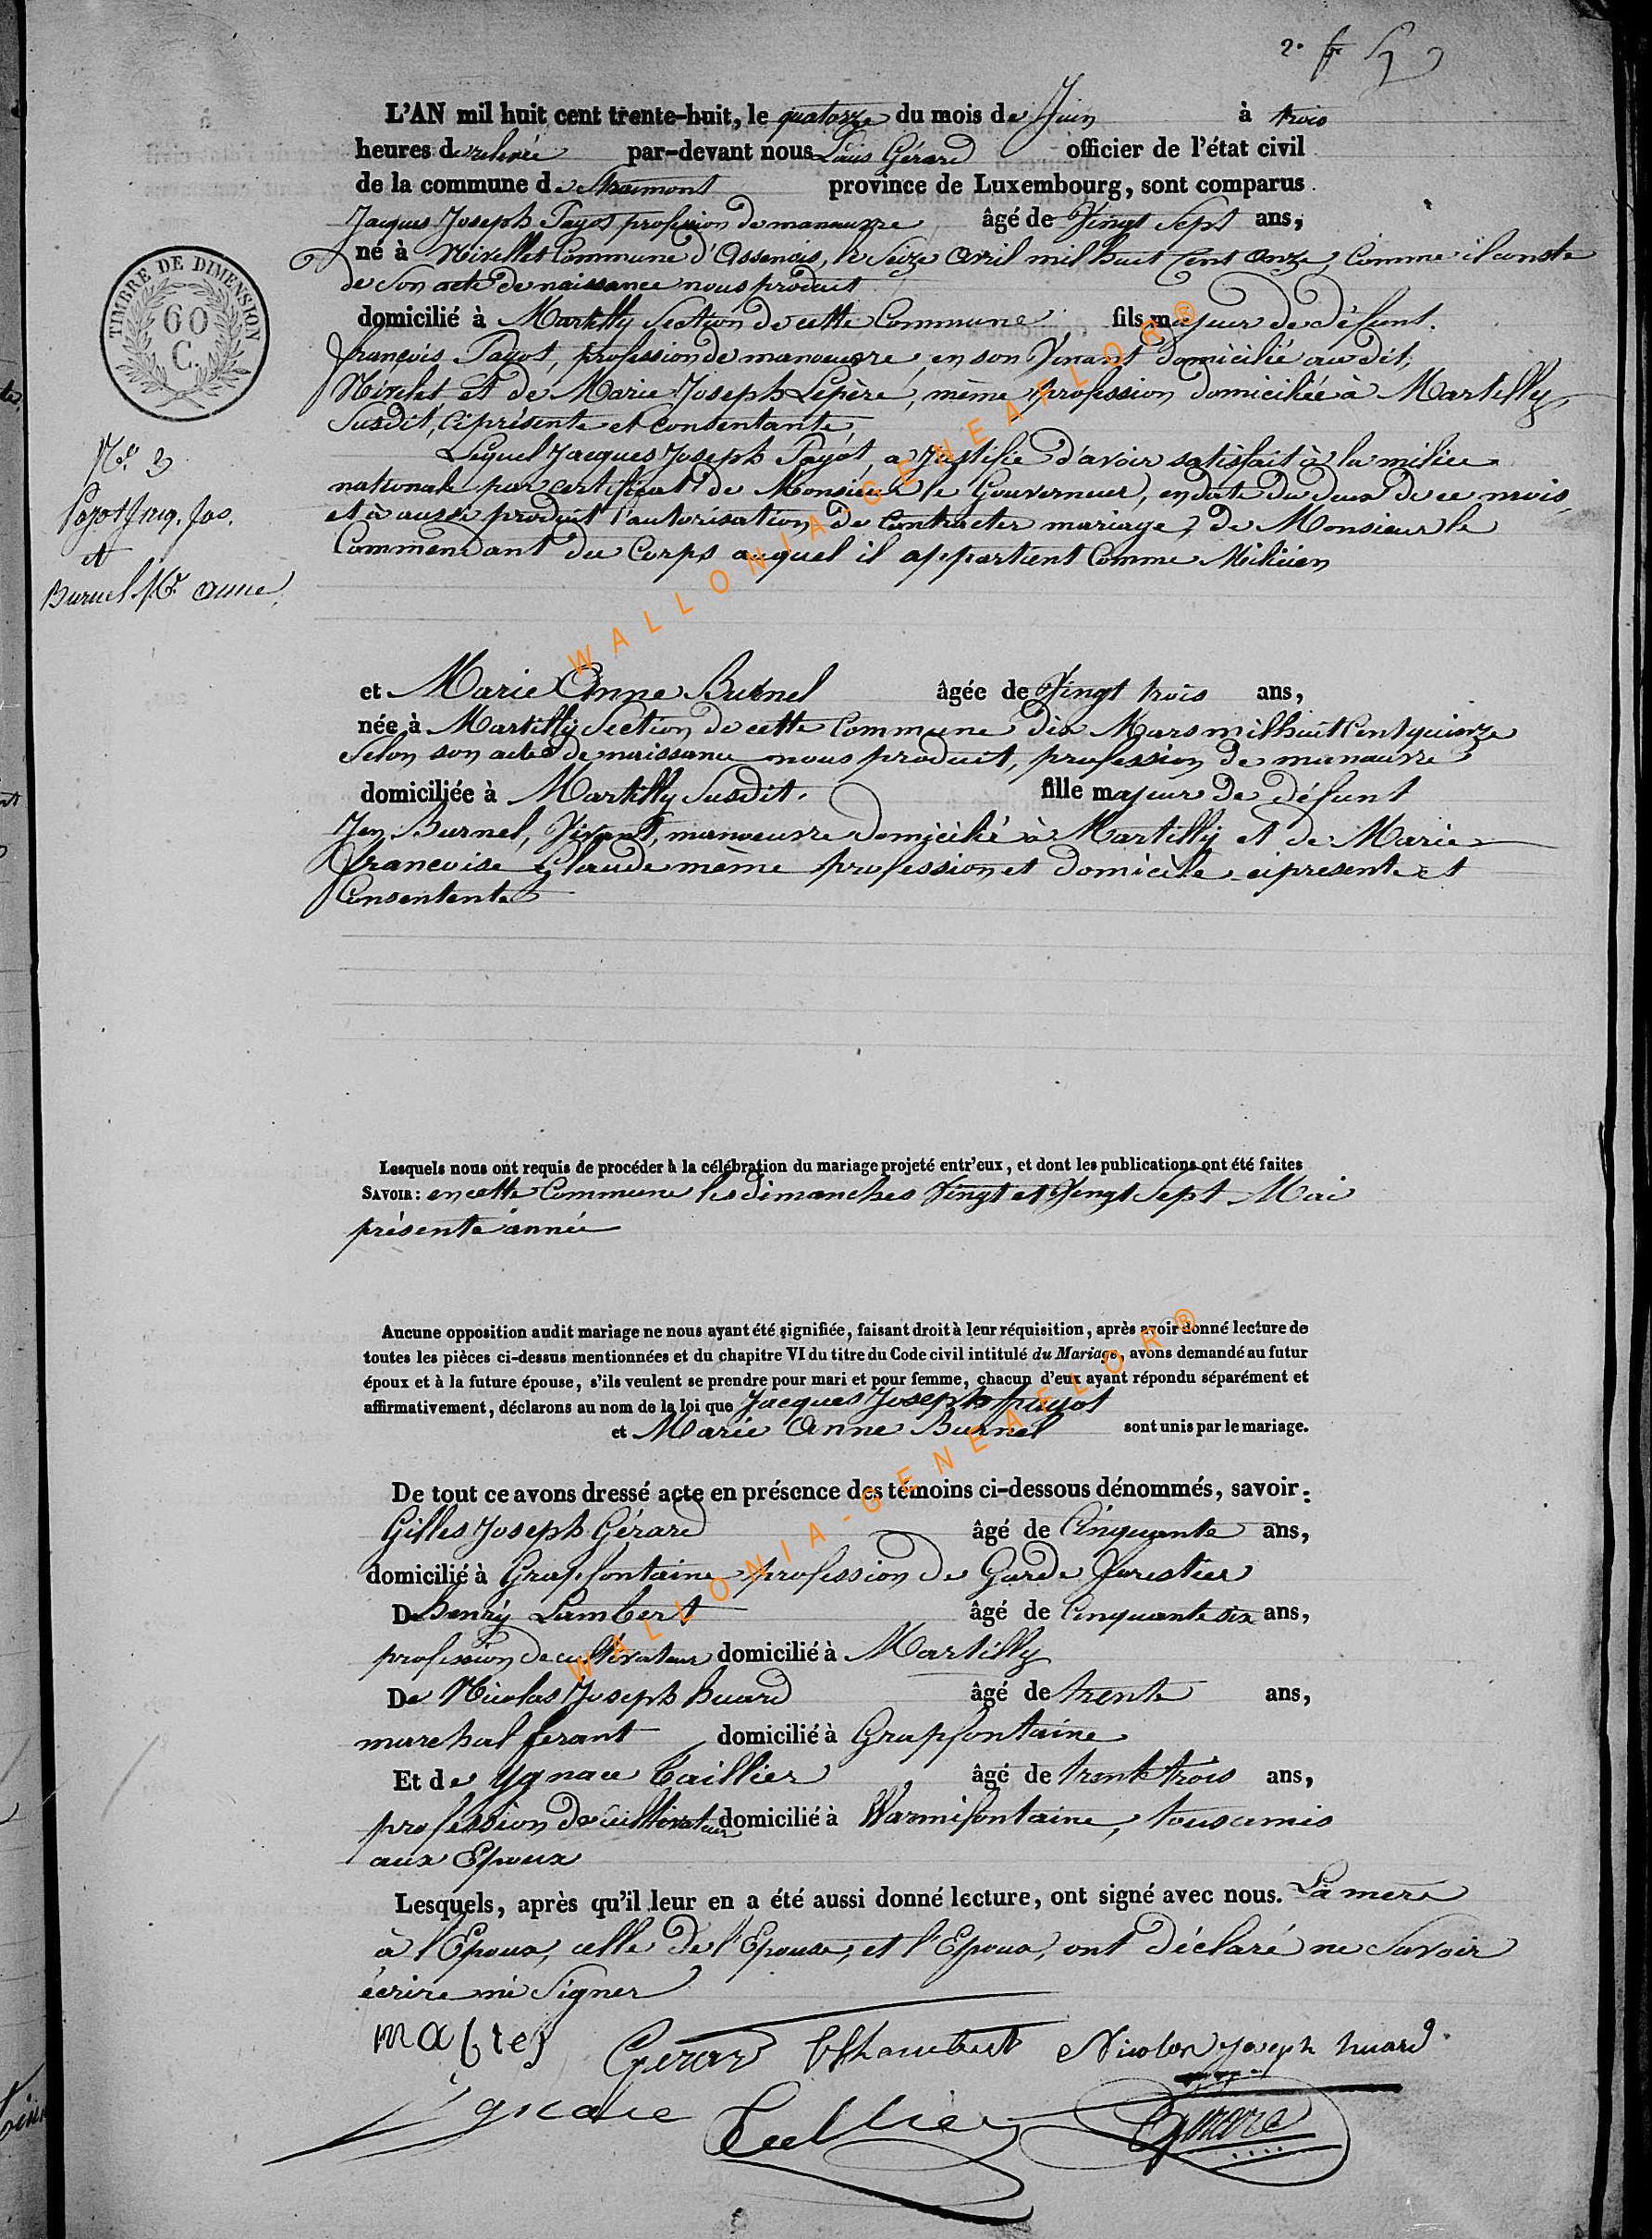 L'AN mil huit cent trente-huit, le quatorze du mois de Juin à trois
heures de relevée par-devant nous Louis Gérard officier de l'état civil
de la commune de Straimont province de Luxembourg, sont comparus
Jacques Joseph Payot profession de manœuvre âgé de Vingt Sept ans,
né à Nivellet Commune d'Assenois, le Seize avril mil huit Cent Onze, Comme il conste
de Son acte de naissance nous produit
domicilié à Martilly Section de cette Commune fils majeur de défunt
françois Payot, profession de manoeuvre, en son Vivant domicilié au dit,
Nivelet et de Marie Joseph Lépère, même profession domiciliée à Martilly
Susdit, ci présente et Consentante
Lequel Jacques Joseph Payot, a justifié d'avoir satisfait à la milice
nationale par certificat de Monsieur le Gouverneur, en date du deux de ce mois,
et à aussi produit l'autorisation de Contracter mariage, de Monsieur le
Commendant du Corps auquel il appartient Comme Milicien
TIMBRE DE DIMENSION
60
C.
N° 3
Payot Jacq. Jos.
et
Burnel M.ie anne
et Marie Anne Burnel âgée de Vingt trois ans,
née à Martilly Section de cette Commune dix Mars mil huit Cent quinze
Selon son acte de naissance nous produit, profession de manœuvre
domiciliée à Martilly Susdit. fille majeur de défunt
Jen Burnel, Vivant, manoeuvre domicilié à Martilly et de Marie
francoise Glaude même profession et domicile ci presente et
Consentente
Lesquels nous ont requis de procéder à la célébration du mariage projeté entr'eux, et dont les publications ont été faites
SAVOIR : en cette Commune les dimanches Vingt et Vingt Sept Mai
présente année
Aucune opposition audit mariage ne nous ayant été signifiée, faisant droit à leur réquisition, après avoir donné lecture de
toutes les pièces ci-dessus mentionnées et du chapitre VI du titre du Code civil intitulé du Mariage, avons demandé au futur
époux et à la future épouse, s'ils veulent se prendre pour mari et pour femme, chacun d'eux ayant répondu séparément et
affirmativement, déclarons au nom de la loi que Jacques Joseph payot
et Marie Anne Burnel sont unis par le mariage.
De tout ce avons dressé acte en présence des témoins ci-dessous dénommés, savoir :
Gilles Joseph Gérard âgé de Cinquante ans,
domicilié à Grapfontaine profession de Garde forestier
De henry Lambert âgé de Cinquante six ans,
profession de cultivateur domicilié à Martilly
De Nicolas Joseph huard âgé de trente ans,
marchal ferant domicilié à Grapfontaine
Et de Ygnace taillier âgé de trente trois ans,
profession de cultivateur domicilié à Warmifontaine, tous amis
aux Epoux
Lesquels, après qu'il leur en a été aussi donné lecture, ont signé avec nous. La mère
à l'Epoux, celle de l'Epouse, et l'Epoux, ont déclaré ne Savoir
écrire ni Signer
Gerard Nicolas joseph huard
ignace
WALLONIA-GENEAFLOR®
WALLONIA-GENEAFLOR®